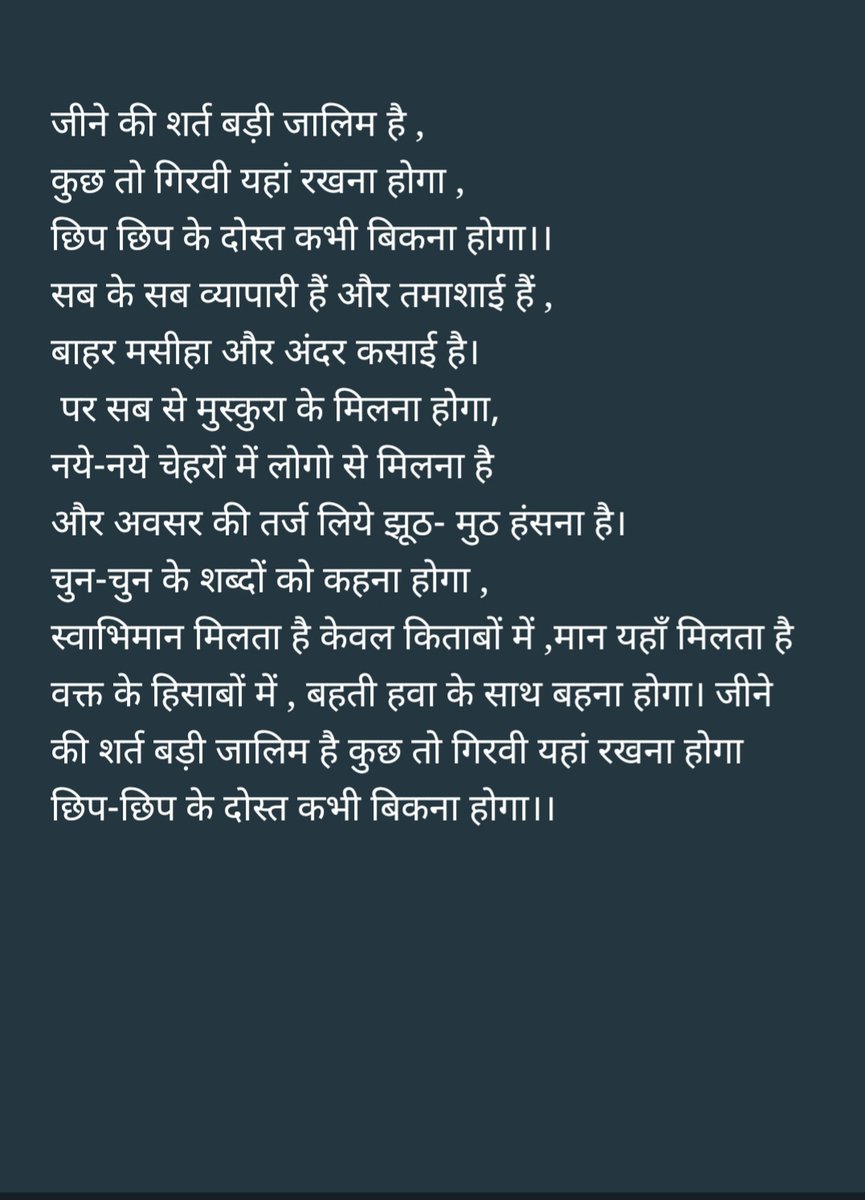 जीने की शर्त बड़ी जालिम है ,
कुछ तो गिरवी यहां रखना होगा ,
छिप छिप के दोस्त कभी बिकना होगा।।
सब के सब व्यापारी हैं और तमाशाई हैं ,
बाहर मसीहा और अंदर कसाई है।
पर सब से मुस्कुरा के मिलना होगा,
नये-नये चेहरों में लोगो से मिलना है
और अवसर की तर्ज लिये झूठ- मुठ हंसना है।
चुन-चुन के शब्दों को कहना होगा ,
स्वाभिमान मिलता है केवल किताबों में ,मान यहाँ मिलता है
वक्त के हिसाबों में , बहती हवा के साथ बहना होगा। जीने
की शर्त बड़ी जालिम है कुछ तो गिरवी यहां रखना होगा
छिप-छिप के दोस्त कभी बिकना होगा।।